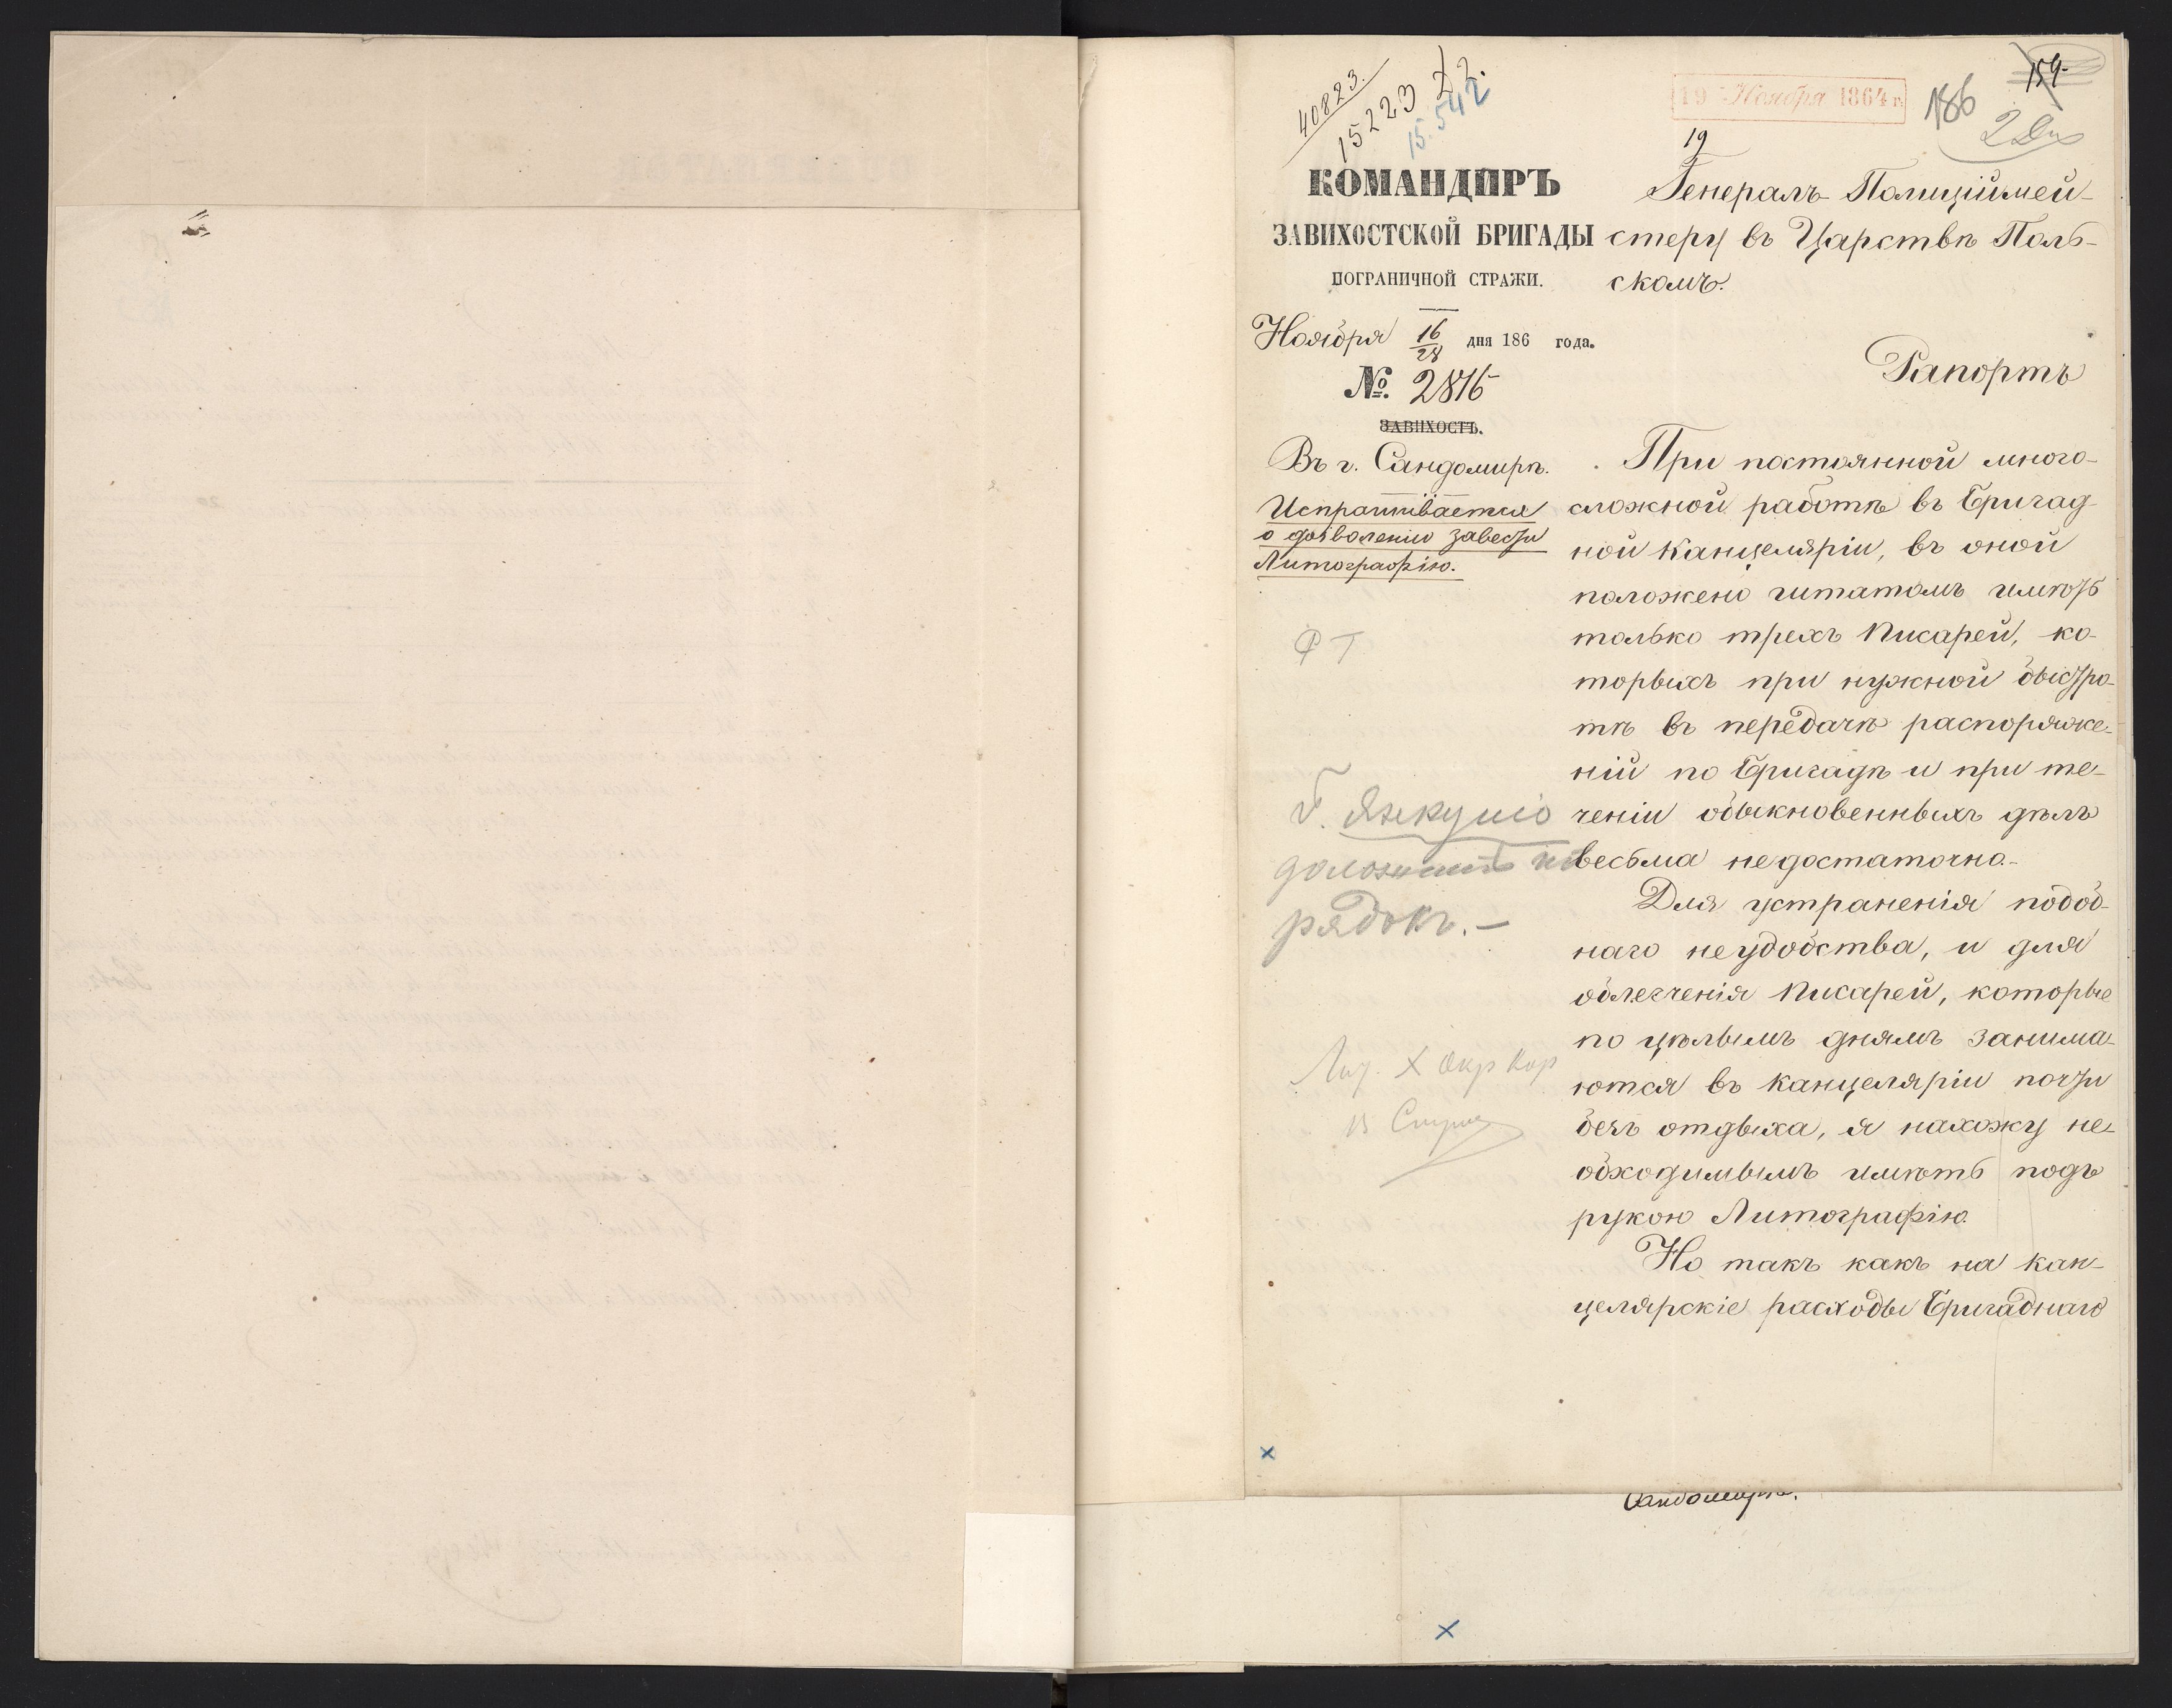 40823.
15223
15.542
19 Ноября 1864 г.
186
159.
19
КОМАНДИРЪ
ЗАВИХОСТСКОЙ БРИГАДЫ
ПОГРАНИЧНОЙ СТРАЖИ.
Ноября 16/28 дня 186 года.
№. 2816
ЗАВИХОСТЪ.
Въ г. Сандомирѣ.
Испрашивается
о дозволеніи завести
Литографію.
Генералъ-Полиціймей-
стеру въ Царствѣ Поль-
скомъ.
Рапортъ
При постоянной много-
сложной работѣ въ Бригад-
ной Канцеляріи, въ оной
положено штатомъ имѣть
только трехъ Писарей, ко-
торыхъ при нужной быстро-
тѣ въ передачѣ распоряже-
ній по Бригадѣ и при те-
ченіи обыкновенныхъ дѣлъ
весьма недостаточно.-
Для устраненія подоб-
наго неудобства, и для
облегченія Писарей, которые
по цѣлымъ днямъ занима-
ются въ канцеляріи почти
безъ отдыха, я нахожу не-
обходимымъ имѣть подъ
рукою Литографію.
Но такъ какъ на кан-
целярскіе расходы Бригаднаго
доложить по
рядокъ.-
Сандомирѣ.